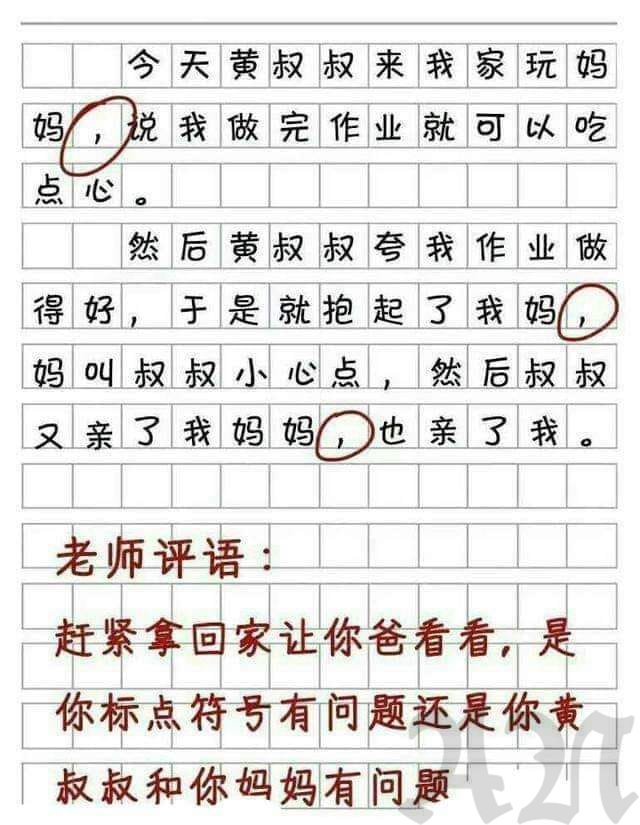 今天黄叔叔来我家玩妈
妈，说我做完作业就可以吃
点心。
然后黄叔叔夸我作业做
得好，于是就抱起了我妈，
妈叫叔叔小心点，然后叔叔
又亲了我妈妈，也亲了我。
老师评语：
赶紧拿回家让你爸看看，是
你标点符号有问题还是你黄
叔叔和你妈妈有问题
AN